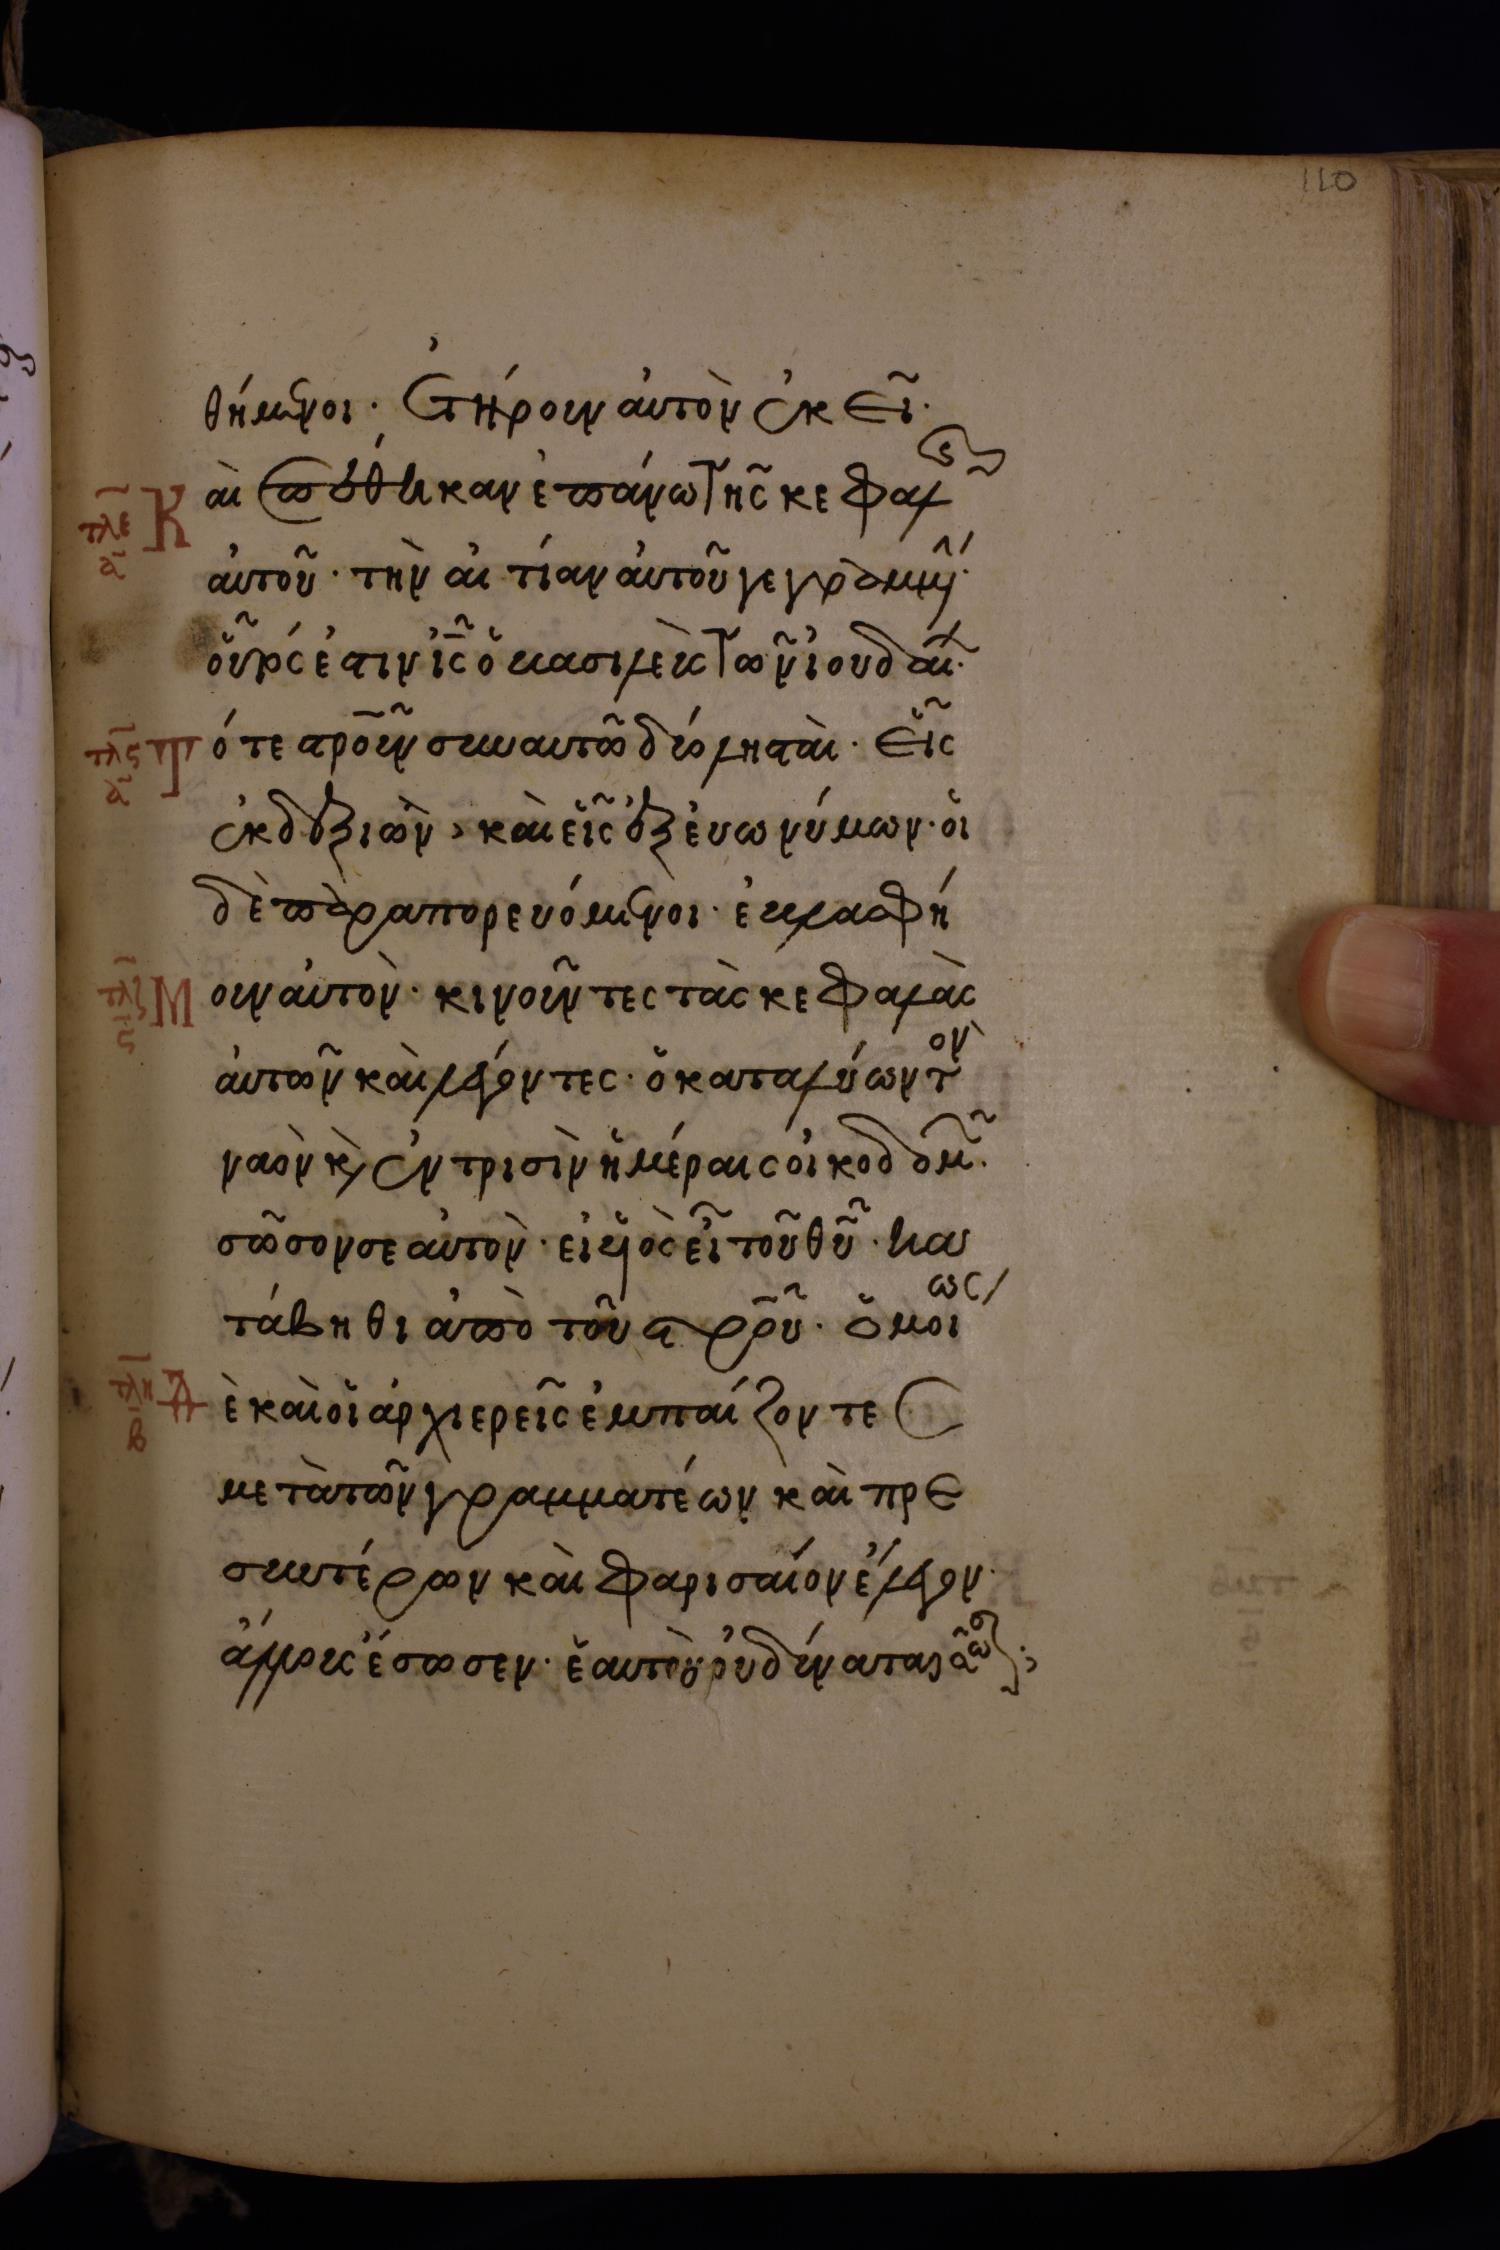 110
θήμενοι · ἐτήρουν αὐτὸν ἐκεῖ ·
τλε α Καὶ ἐπέθηκαν ἐπάνω τῆς κεφαλῆς
αὐτοῦ · τὴν αἰτίαν αὐτοῦ γεγραμμένην ·
οὗτός ἐστιν ις ὁ βασιλεὺς τῶν ἰουδαίων ·
τλς α Τότε στροῦνσυναυτῶ δύο λησταὶ · εἷς
ἐκ δεξιῶν, καὶ εἷς ἐξ εὐωνύμων · οἱ
δὲ παραπορευόμενοι · ἐβλασφή
τλζ ς Μουν αὐτὸν · κινοῦντες τὰς κεφαλὰς
αὐτῶν καὶ λέγοντες · ὁ καταλύων τὸν
ναὸν κ ἐν τρισὶν ἡμέραις οἰκοδομῶν ·
σῶσον σεαυτὸν · εἰ υἱὸς εἶ τοῦ θῦ · κα
τάβηθι ἀπὸ τοῦ στροῦ · ὁμοίως
τλη β Δὲ καὶ οἱ ἀρχιερεῖς ἐμπαίζοντες
μετὰ τῶν γραμματέων καὶ πρε
σβυτέρων καὶ φαρισαίον ἔλεγον ·
ἄλλους ἔσωσεν · ἑαυτὸν οὐ δύναται σῶσαι ·